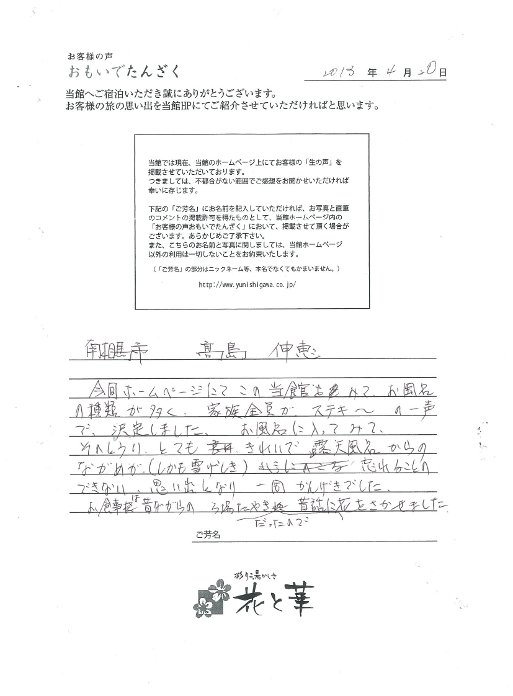 お客様の声
おもいでたんざく
2013 年 4 月 20 日
当館へご宿泊いただき誠にありがとうございます。
お客様の旅の思い出を当館HPにてご紹介させていただければと思います。
当館では現在、当館のホームページ上にてお客様の「生の声」を
掲載させていただいております。
つきましては、不都合がない範囲でご感想をお聞かせいただければ
幸いに存じます。
下記の「ご芳名」にお名前を記入していただければ、お写真と直筆
のコメントの掲載許可を得たものとして、当館ホームページ内の
「お客様の声おもいでたんざく」において、掲載させて頂く場合が
ございます。あらかじめご了承下さい。
また、こちらのお名前と写真に関しましては、当館ホームページ
以外の利用は一切しないことをお約束いたします。
(「ご芳名」の部分はニックネーム等、本名でなくてもかまいません。)
http://www.yunishigawa.co.jp/
南相馬市 髙島 伸恵
今回ホームページにて この当館をみて、お風呂
の種類が多く、家族全員が ステキ〜 の一声
で、決定しました。 お風呂に入ってみて、
そのとうり、とても きれいで 露天風呂からの
ながめが(しかも雪げしき) 忘れることの
できない 思い出となり 一同 かんげきでした。
お食事は昔ながらの いろりやき だったので 昔話に花をさかせました
ご芳名
花と華